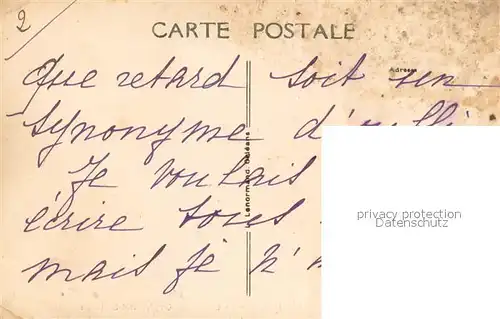 2
CARTE POSTALE
Adresse
Que retard soit un
synonyme d'oubli
Je voulais
écrire tous
mais je n'
Lenormand, Orléans
privacy protection
Datenschutz